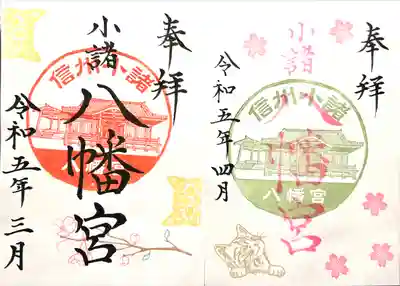 奉拝
信州小諸
小諸
八幡宮
令和五年三月
奉拝
信州小諸
小諸
八幡宮
八幡宮
令和五年四月